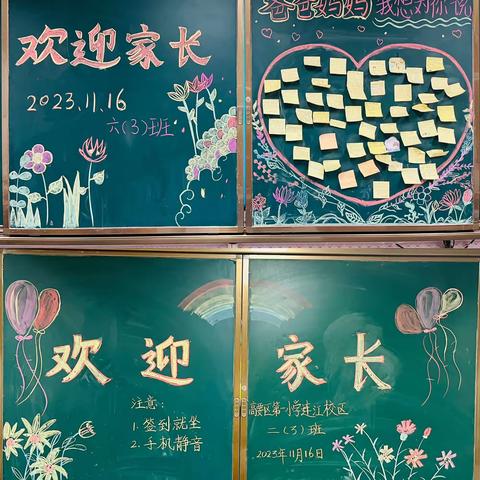 欢迎家长
2023.11.16
六(3)班
爸爸妈妈我想对你说
欢迎家长
注意:
1.签到就坐
2.手机静音
高要区第一小学李江校区
二(3)班
2023年11月16日